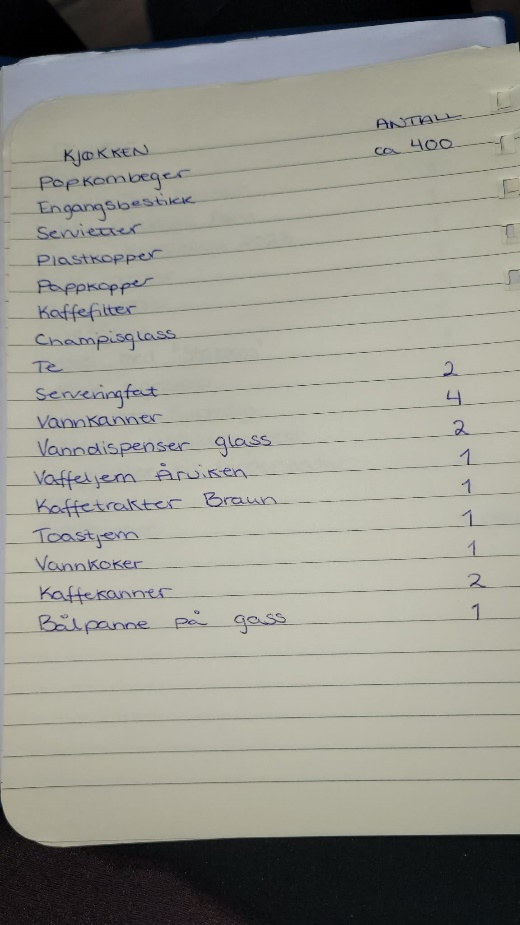 KJØKKEN ANTALL
Popkornbeger ca 400
Engangsbestikk
Servietter
Plastkopper
Pappkopper
Kaffefilter
Champisglass
Te
Serveringfat 2
Vannkanner 4
Vanndispenser glass 2
Vaffeljern Årviken 1
Kaffetrakter Braun 1
Toastjern 1
Vannkoker 1
Kaffekanner 2
Bålpanne på gass 1